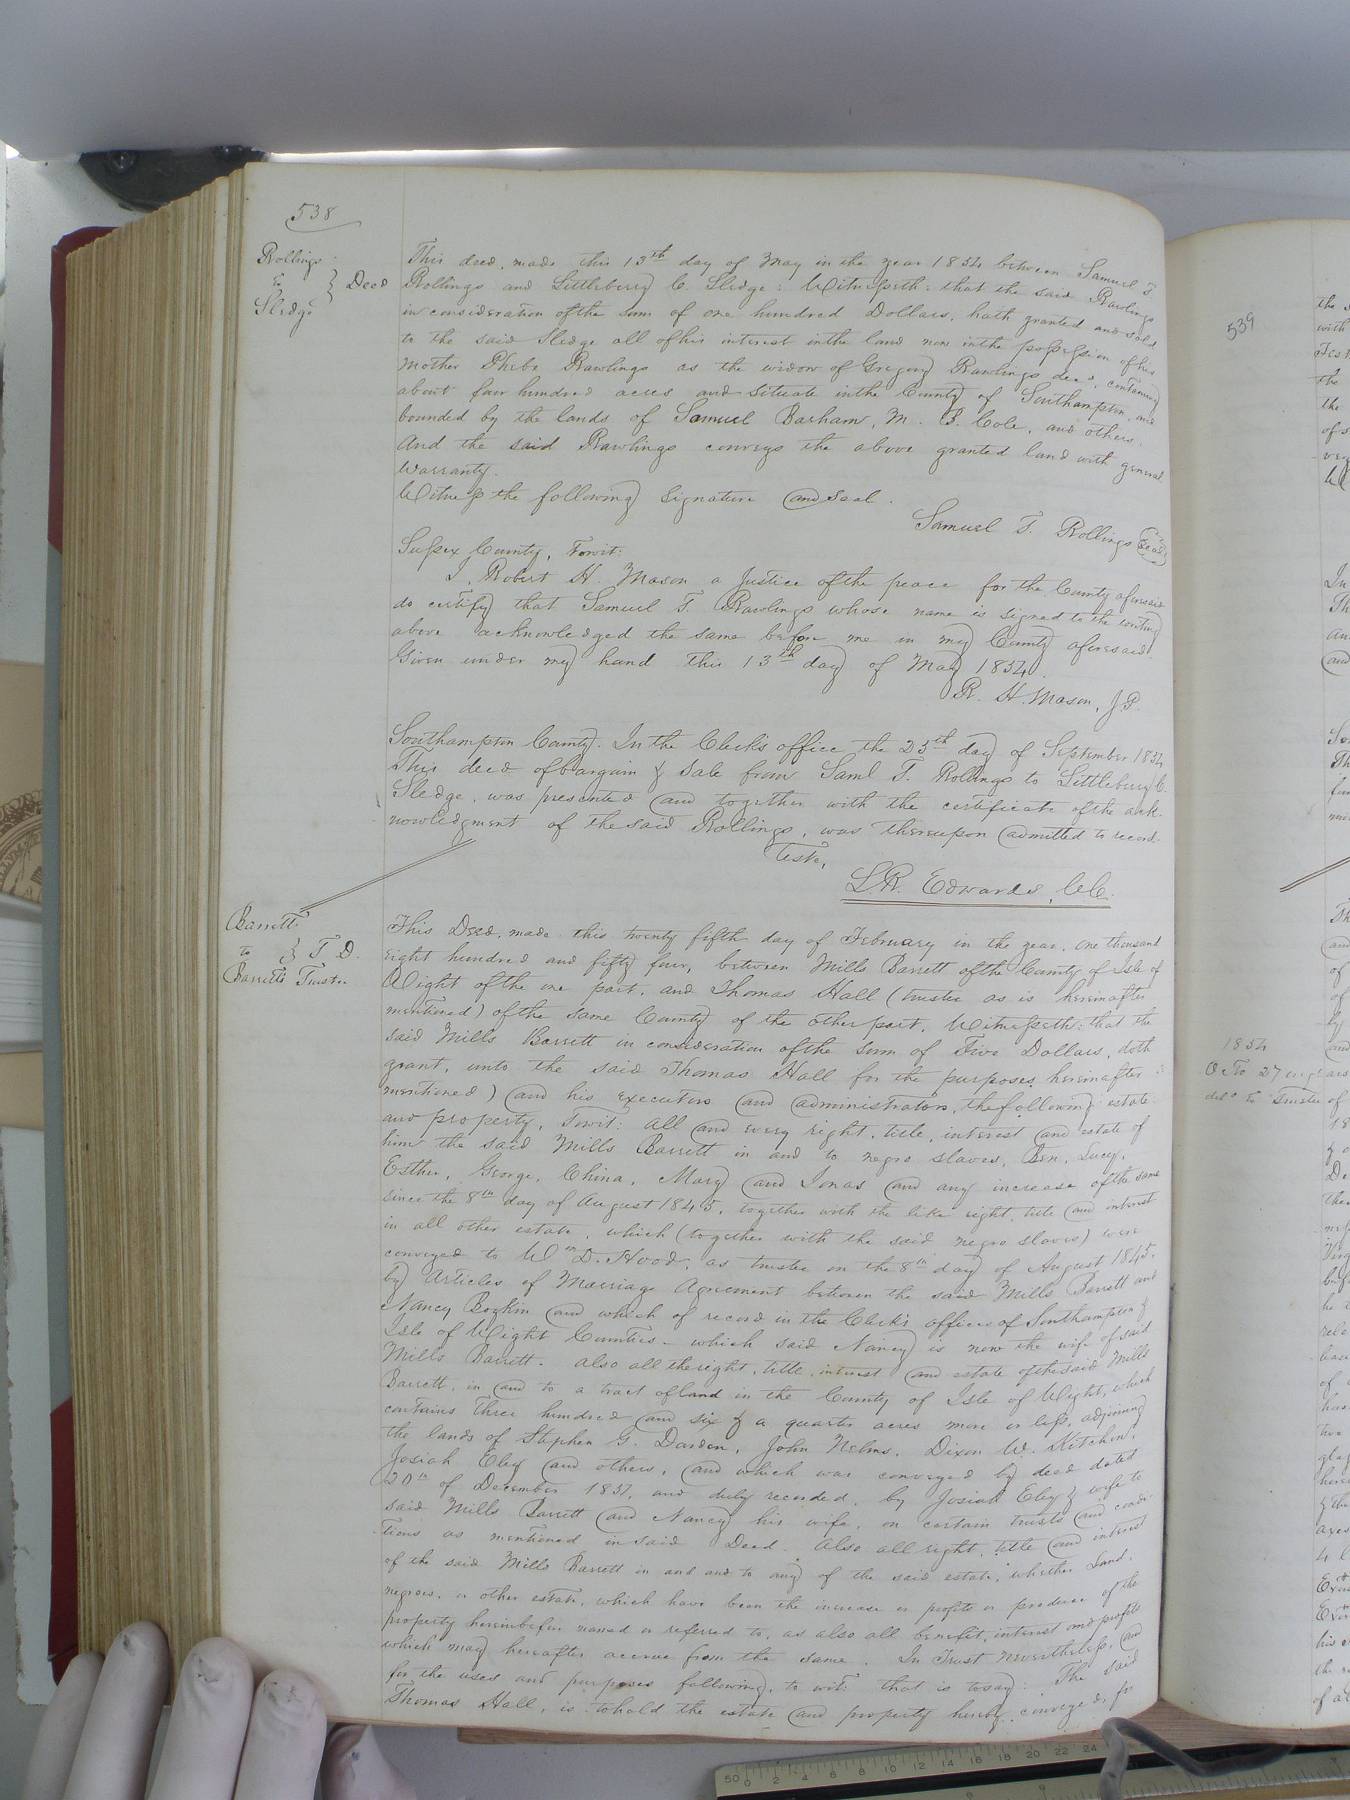 538
Rollings
to } Deed
Sledge
This deed, made this 13th day of May in the year 1854 between Samuel T
Rollings and Littleberry C. Sledge: Witnesseth: that the said Rawlings
in consideration of the sum of one hundred Dollars, hath granted and sold
to the said Sledge all of his interest in the land now in the possession of his
Mother Phebe Rawlings as the widow of Gregory Rawlings decd, containing
about four hundred acres and situate in the County of Southampton, and
bounded by the lands of Samuel Barham, M. B. Cole, and others.
And the said Rawlings conveys the above granted land with general
Warranty.
Witness the following signature and seal.
Samuel T. Rollings (Seal)
Sussex County, Towit:
I, Robert H. Mason a Justice of the peace for the County aforesaid
do certify that Samuel T. Rawlings whose name is signed to the writing
above acknowledged the same before me in my County aforesaid.
Given under my hand this 13th day of May 1854.
R. H. Mason, J.P.
Southampton County. In the Clerk's office the 25th day of September 1854
This deed of bargain & sale from Saml T. Rollings to Littleberry C.
Sledge, was presented and together with the certificate of the ack-
nowledgment of the said Rollings, was thereupon admitted to record.
Teste,
L. R. Edwards, C.C.
Barrett
to } T. D.
Barretts Trustee
This Deed, made this twenty fifth day of February in the year, one thousand
eight hundred and fifty four, between Mills Barrett of the County of Isle of
Wight of the one part, and Thomas Hall (trustee as is hereinafter
mentioned) of the same County of the other part, Witnesseth: that the
said Mills Barrett in consideration of the sum of Five Dollars, doth
grant, unto the said Thomas Hall for the purposes hereinafter
mentioned) and his executors and administrators, the following estate
and property, Towit: all and every right, title, interest and estate of
him the said Mills Barrett in and to negro slaves, Ben, Lucy,
Esther, George, China, Mary and Jonas and any increase of the same
since the 8th day of August 1845, together with the like right, title and interest
in all other estate, which (together with the said negro slaves) were
conveyed to Wm D. Hood, as trustee on the 8th day of August 1845.
by Articles of Marriage Agreement between the said Mills Barrett and
Nancy Bozkin and which of record in the Clerk's offices of Southampton &
Isle of Wight Counties - which said Nancy is now the wife of said
Mills Barrett. Also all the right, title, interest and estate of the said Mills
Barrett, in and to a tract of land in the County of Isle of Wight, which
contains Three hundred and six & a quarter acres more or less, adjoining
the lands of Stephen G. Darden, John Nelms, Dixon W. Kitchin,
Josiah Eley and others, and which was conveyed by deed dated
20th of December 1852, and duly recorded, by Josiah Eley & wife to
said Mills Barrett and Nancy his wife, on certain trusts and condi
tions as mentioned in said Deed. Also all right, title and interest
of the said Mills Barrett in and and to any of the said estate, whether Land,
negroes, or other estate, which have been the increase or profits or produce of the
property hereinbefore named or referred to, as also all benefit, interest and profits
which may hereafter accrue from the same. In Trust nevertheless, and
for the uses and purposes following, to wit: that is to say: The said
Thomas Hall, is to hold the estate and property hereby conveyed, for
539
1854
deld to Trustee